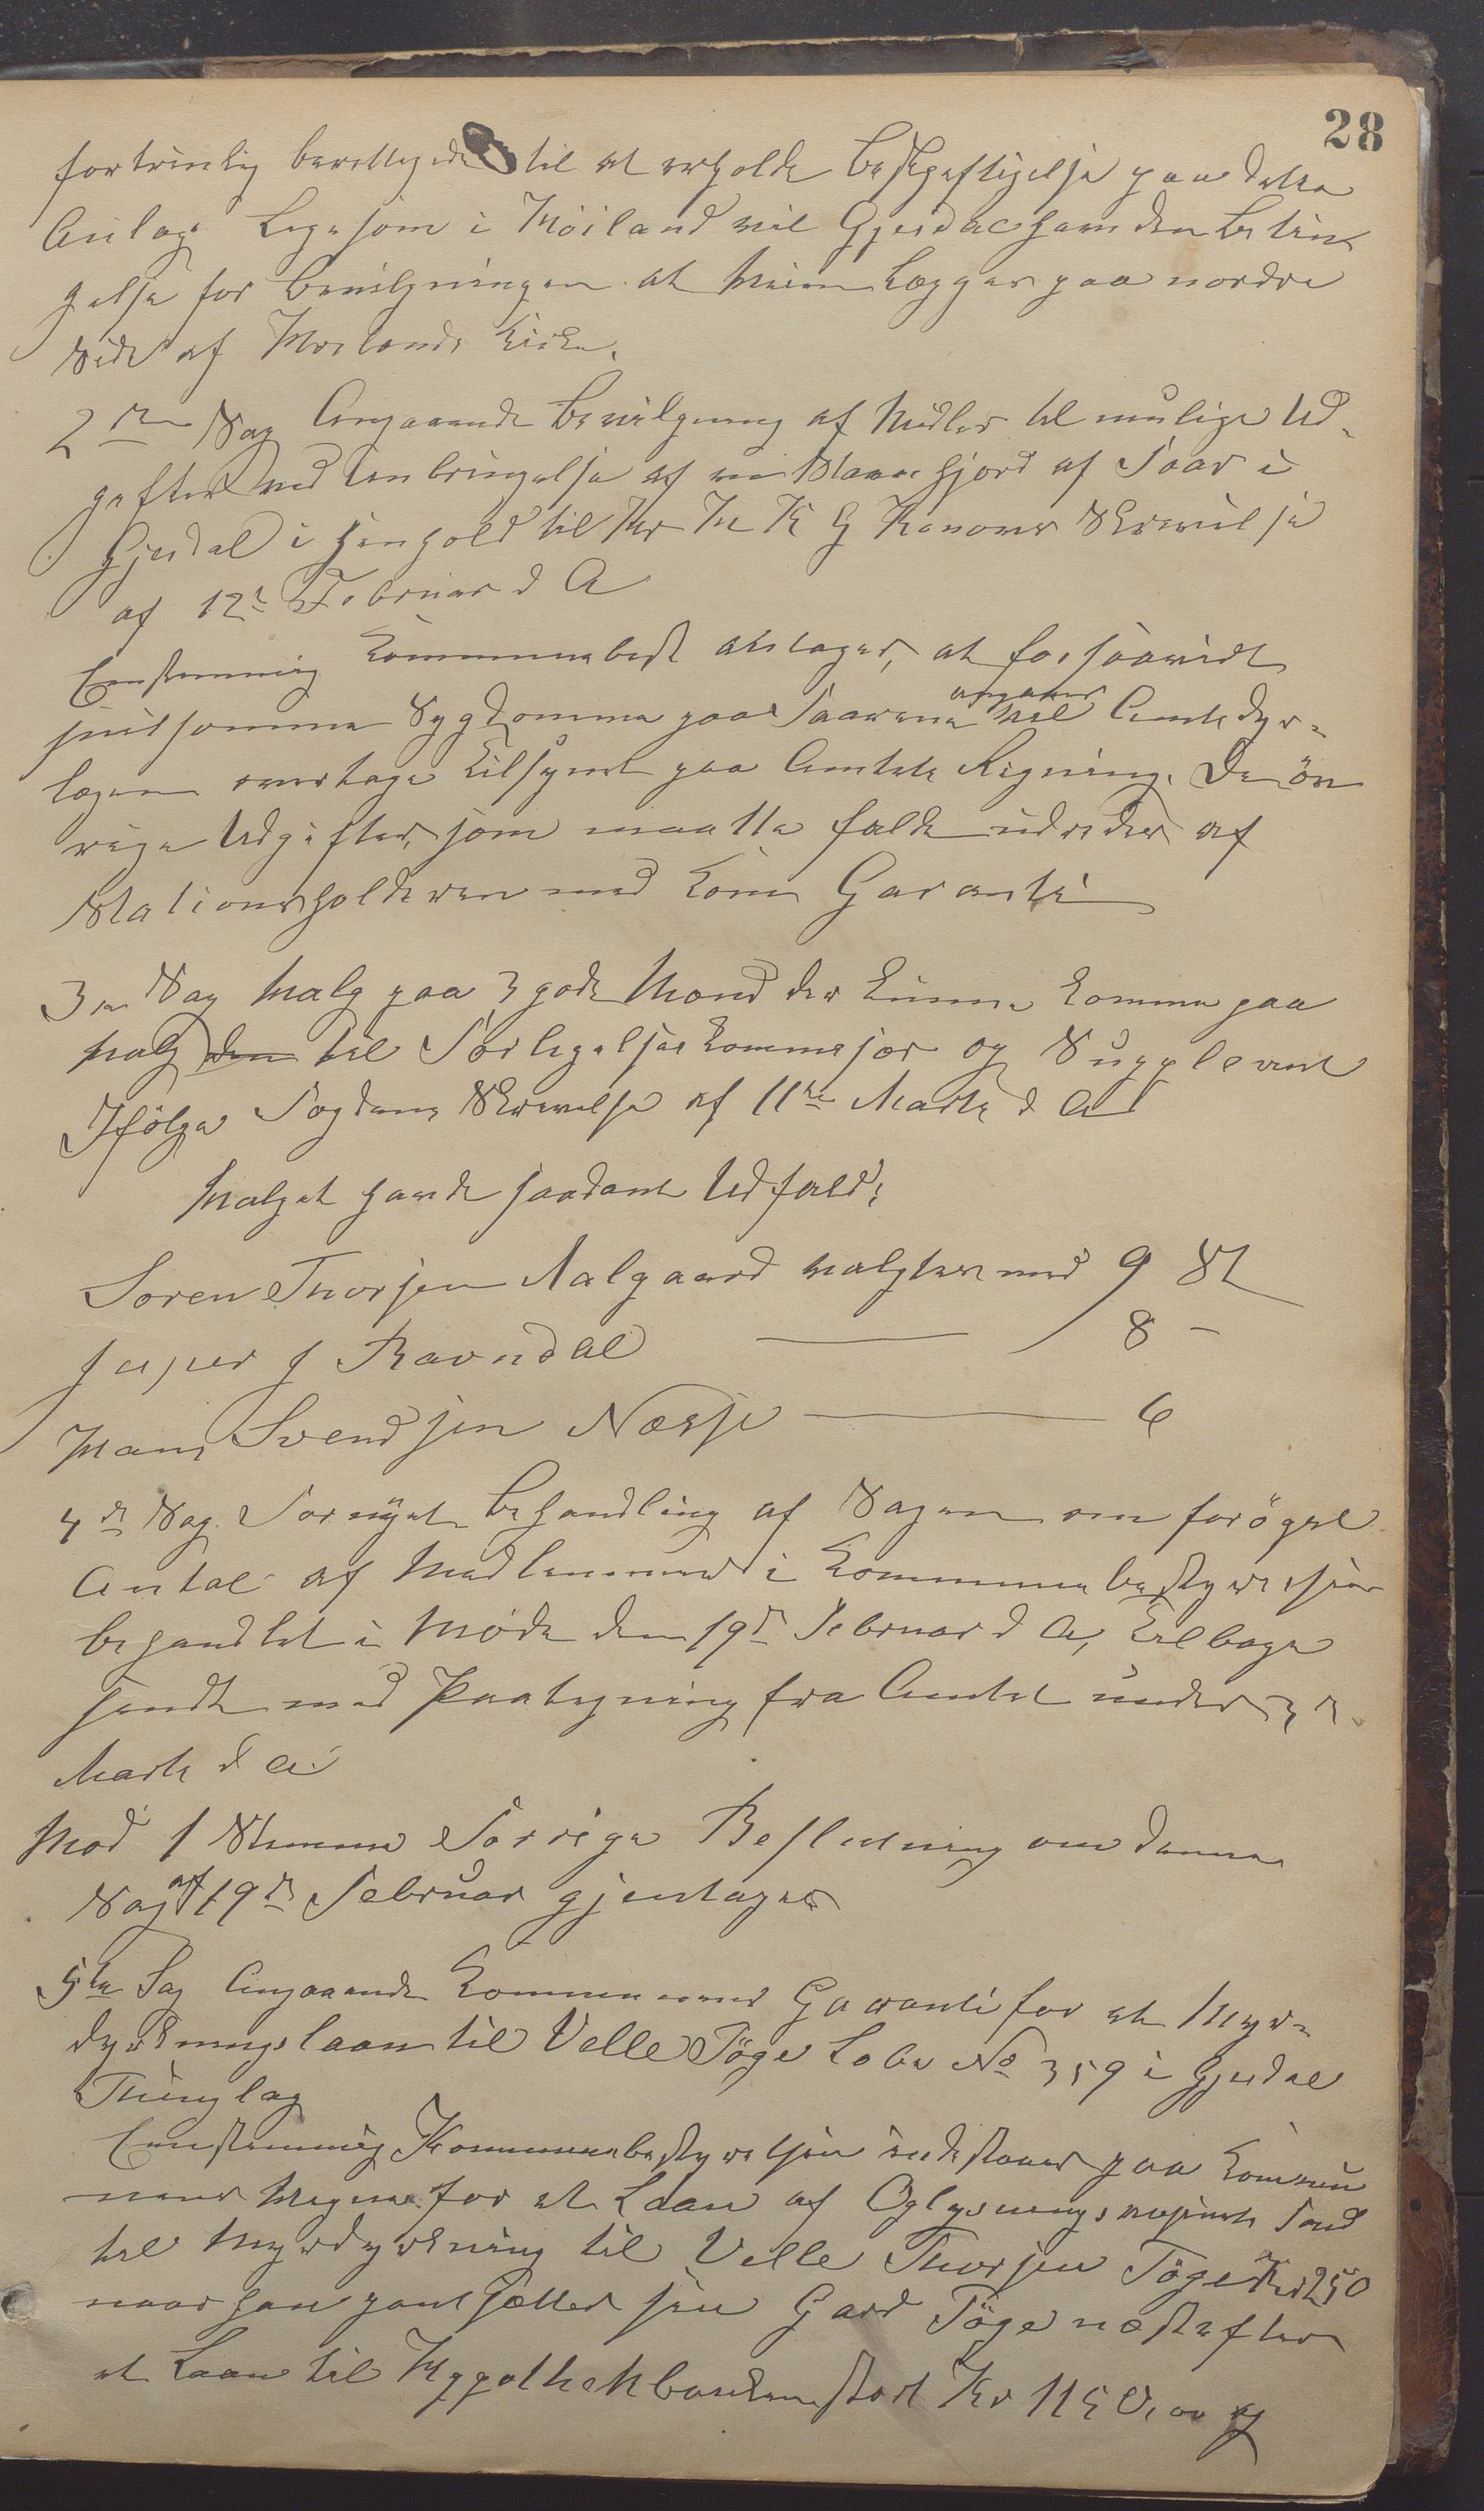 28
fortrinlig berettigede til at erholde Beskjeftigelse paa dette
Anlæg. Ligesom i Moiland vil Gjesdal have den Betin
gelse for Bevilgningen at Veien lægges paa nordre
Side af Moilands Kirke.
2den Sag Angaaende Bevilgning af Midler til mulige Ud-
gifter ved Indbringelse af en Stamhjord af Faar i
Gjesdal i Henhold til Hr Skrivelse
af 12te Februar d A
Enstemmig Kommunebest antager, at forsaavidt
smitsomme Sygdomme paa Faarene angaaer vil Amtsdyr-
lægen overtage Tilsynet paa Amtets Regning. De öv
rige Udgifter, som maatte falde udredes af
Stationsholderen med Kom Garanti
3die Sag Valg paa 3 gode Mænd der kunne komme paa
Valg den til Forligelseskommisær og Suppleant
Ifölge Fogdens Skrivelse af 11te Marts d A
Valget havde saadant Udfald:
Soren Thorsen Aalgaard valgtes med 9 St
Jesper J Ravndal ——— 8 -
Hans Svendsen Næsse ——— 6
4de Sag. Fornyet Behandling af Sagen om foröget
Antal af Medlemmer i Kommunebestyrelsen
behandlet i Möde den 19de Februar d A, tilbage
sendt med Paategning fra Amtet under 3die
Marts d A.
Mod 1 Stemme Forrige Beslutning om denne
Sag af 19de Februar gjentages
5te Sag Angaaende Kommunens Garanti for et Myr-
dyrkningslaan til Velle Töge Lobe No 359 i Gjesdal
Thinglag
Enstemmig Kommunebestyrelsen indestaaer paa Kommu
nens Vegne for et Laan af Oplysningsvæsenets Fond
til Myrdyrkning til Velle Thorsen Töge Kr 250
naar han pantsætter sin Gard Töge næstefter
et Laan til Hypothekbanken stort Kr 1150,00 og